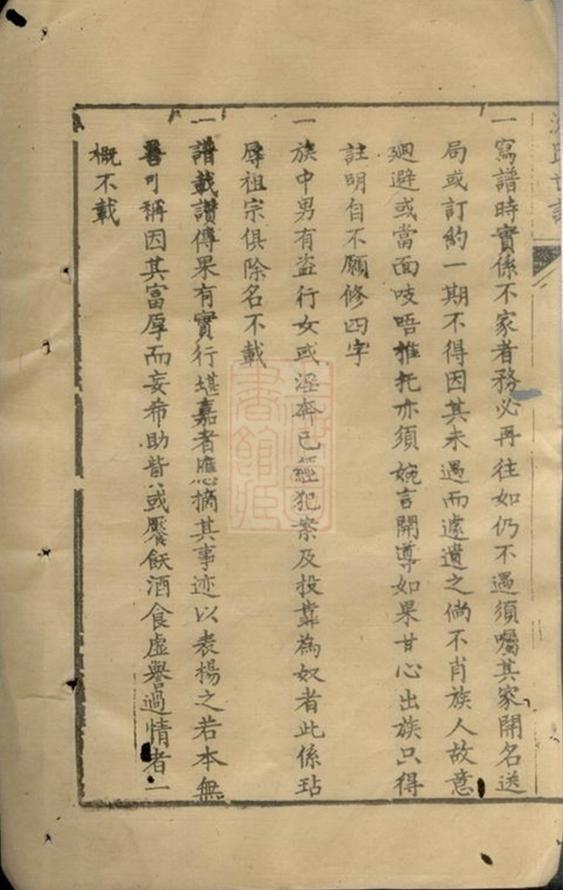 氏世譜
一寫譜時實係不家者務必再往如仍不遇須囑其家開名送
局或訂約一期不得因其未遇而遽遺之倘不肖族人故意
廻避或當面吱唔推托亦須婉言開導如果甘心出族只得
註明自不願修四字
一族中男有盜行女或淫奔已經犯案及投靠為奴者此係玷
辱祖宗俱除名不載
一譜載讚傳果有實行堪嘉者應摘其事迹以表揚之若本無
善可稱因其富厚而妄希助貲或饜飫酒食虛譽過情者一
概不載
書館